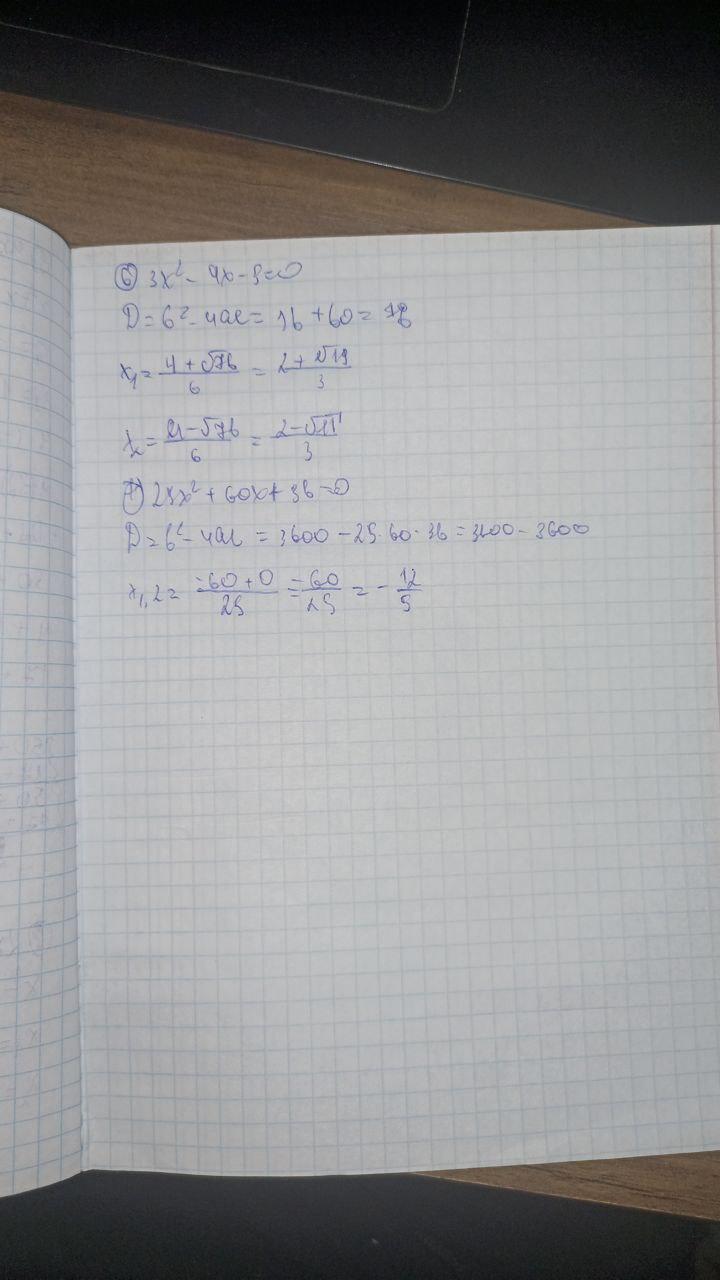 ⑥ 3x² - 4x - 5 = 0
D = b² - 4ac = 16 + 60 = 76
x₁ = (4 + √76)/6 = (2 + √19)/3
x₂ = (4 - √76)/6 = (2 - √19)/3
⑦ 25x² + 60x + 36 = 0
D = b² - 4ac = 3600 - 25·60·36 = 3600 - 3600
x₁,₂ = (-60 + 0)/25 = -60/25 = -12/5